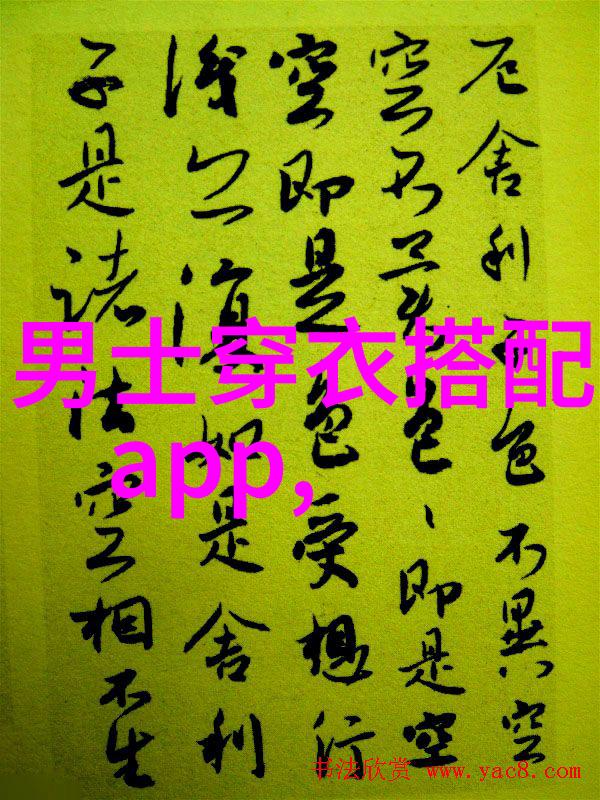 厄舍利子色不異空
空不異色、即是空
空即是色受想行
識亦復如是舍利
子是諸法空相不生
男士穿衣搭配
app,
书法欣赏 www.yac8.com